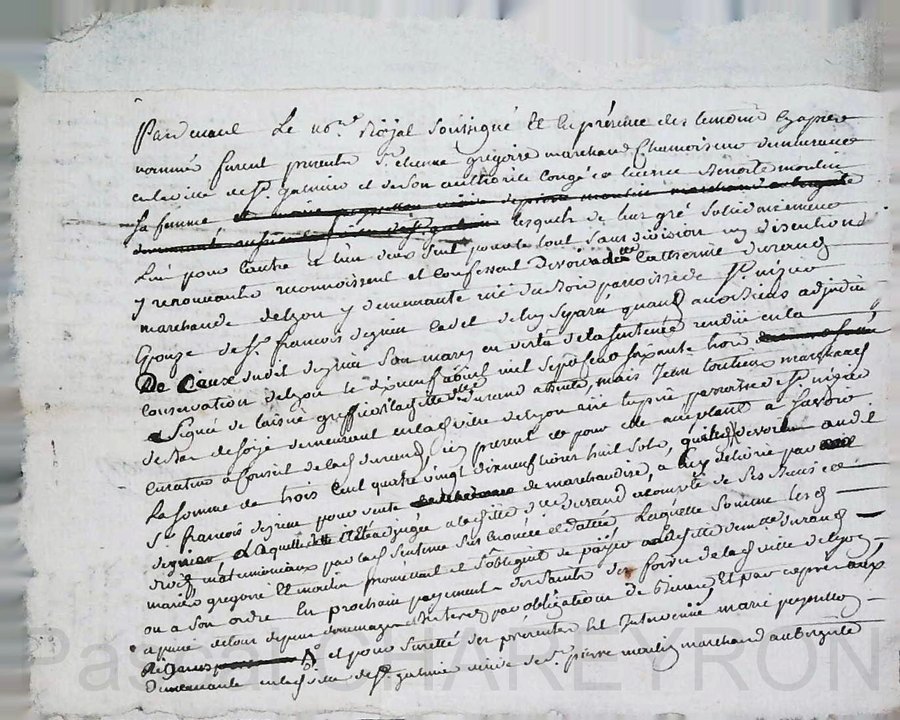 Pardevant Le no.re Royal Soussigné Et En présence des temoins Cy apres
nommés furent presents Sr. etienne gregoire marchand Chamoiseur demeurant
en la ville de St. galmier et de son authorité Congé et licence Benoite moulin
Sa femme lesquels de leur gré Solidairement
L'un pour L'autre et L'un deux Seul pour le tout Sans division ny discution
y renonceants reconnoissent et Confessent devoir a dlle Catherine durand
marchande de lyon y demeurante rue du Bois paroisse de St. nizier
Epouze de Sr. francois degrieu Cadet de luy Separé quand aux Biens adjudicataire
De Ceux dudit degrieu Son mary en vertu de la Sentence rendüe en la
Conservation de lyon le dixneuf avril mil Sept Cent Soixante trois
Signée de laisné greffier la ditte dlle durand absente, mais Jean marchand
de Bas de Soye demeurant en la ditte ville de lyon rue paroisse de St. nizier
Curateur a Conseil de la d. durand, icy present et pour elle acceptant a Sçavoir
La Somme de trois Cent quatre vingt dixneuf livres huit Sols, qu'ils devoient audit
Sr. francois degrieu pour vente de marchandise, a luy delivrée par
degrieu, Laquelle ditte adjugée a la ditte dlle durand a Compte de Ses Biens et
droits matrimoniaux par la d. Sentence Sus Enoncée et dattée, Laquelle Somme Les d.
mariés gregoire Et moulin promettent et S'obligent de payer a la ditte demlle durand
ou a Son ordre En prochain payement des Saints de la d. ville de lyon
a peine de tous depens dommages et Interets par obligation de Et par exprès aux
et pour Sureté des présentes Est Intervenüe marie peyrollon
Demeurante en la d. ville de St. galmier veuve de Sr. pierre moulin marchand aubergiste
Pascal CHAREYRON